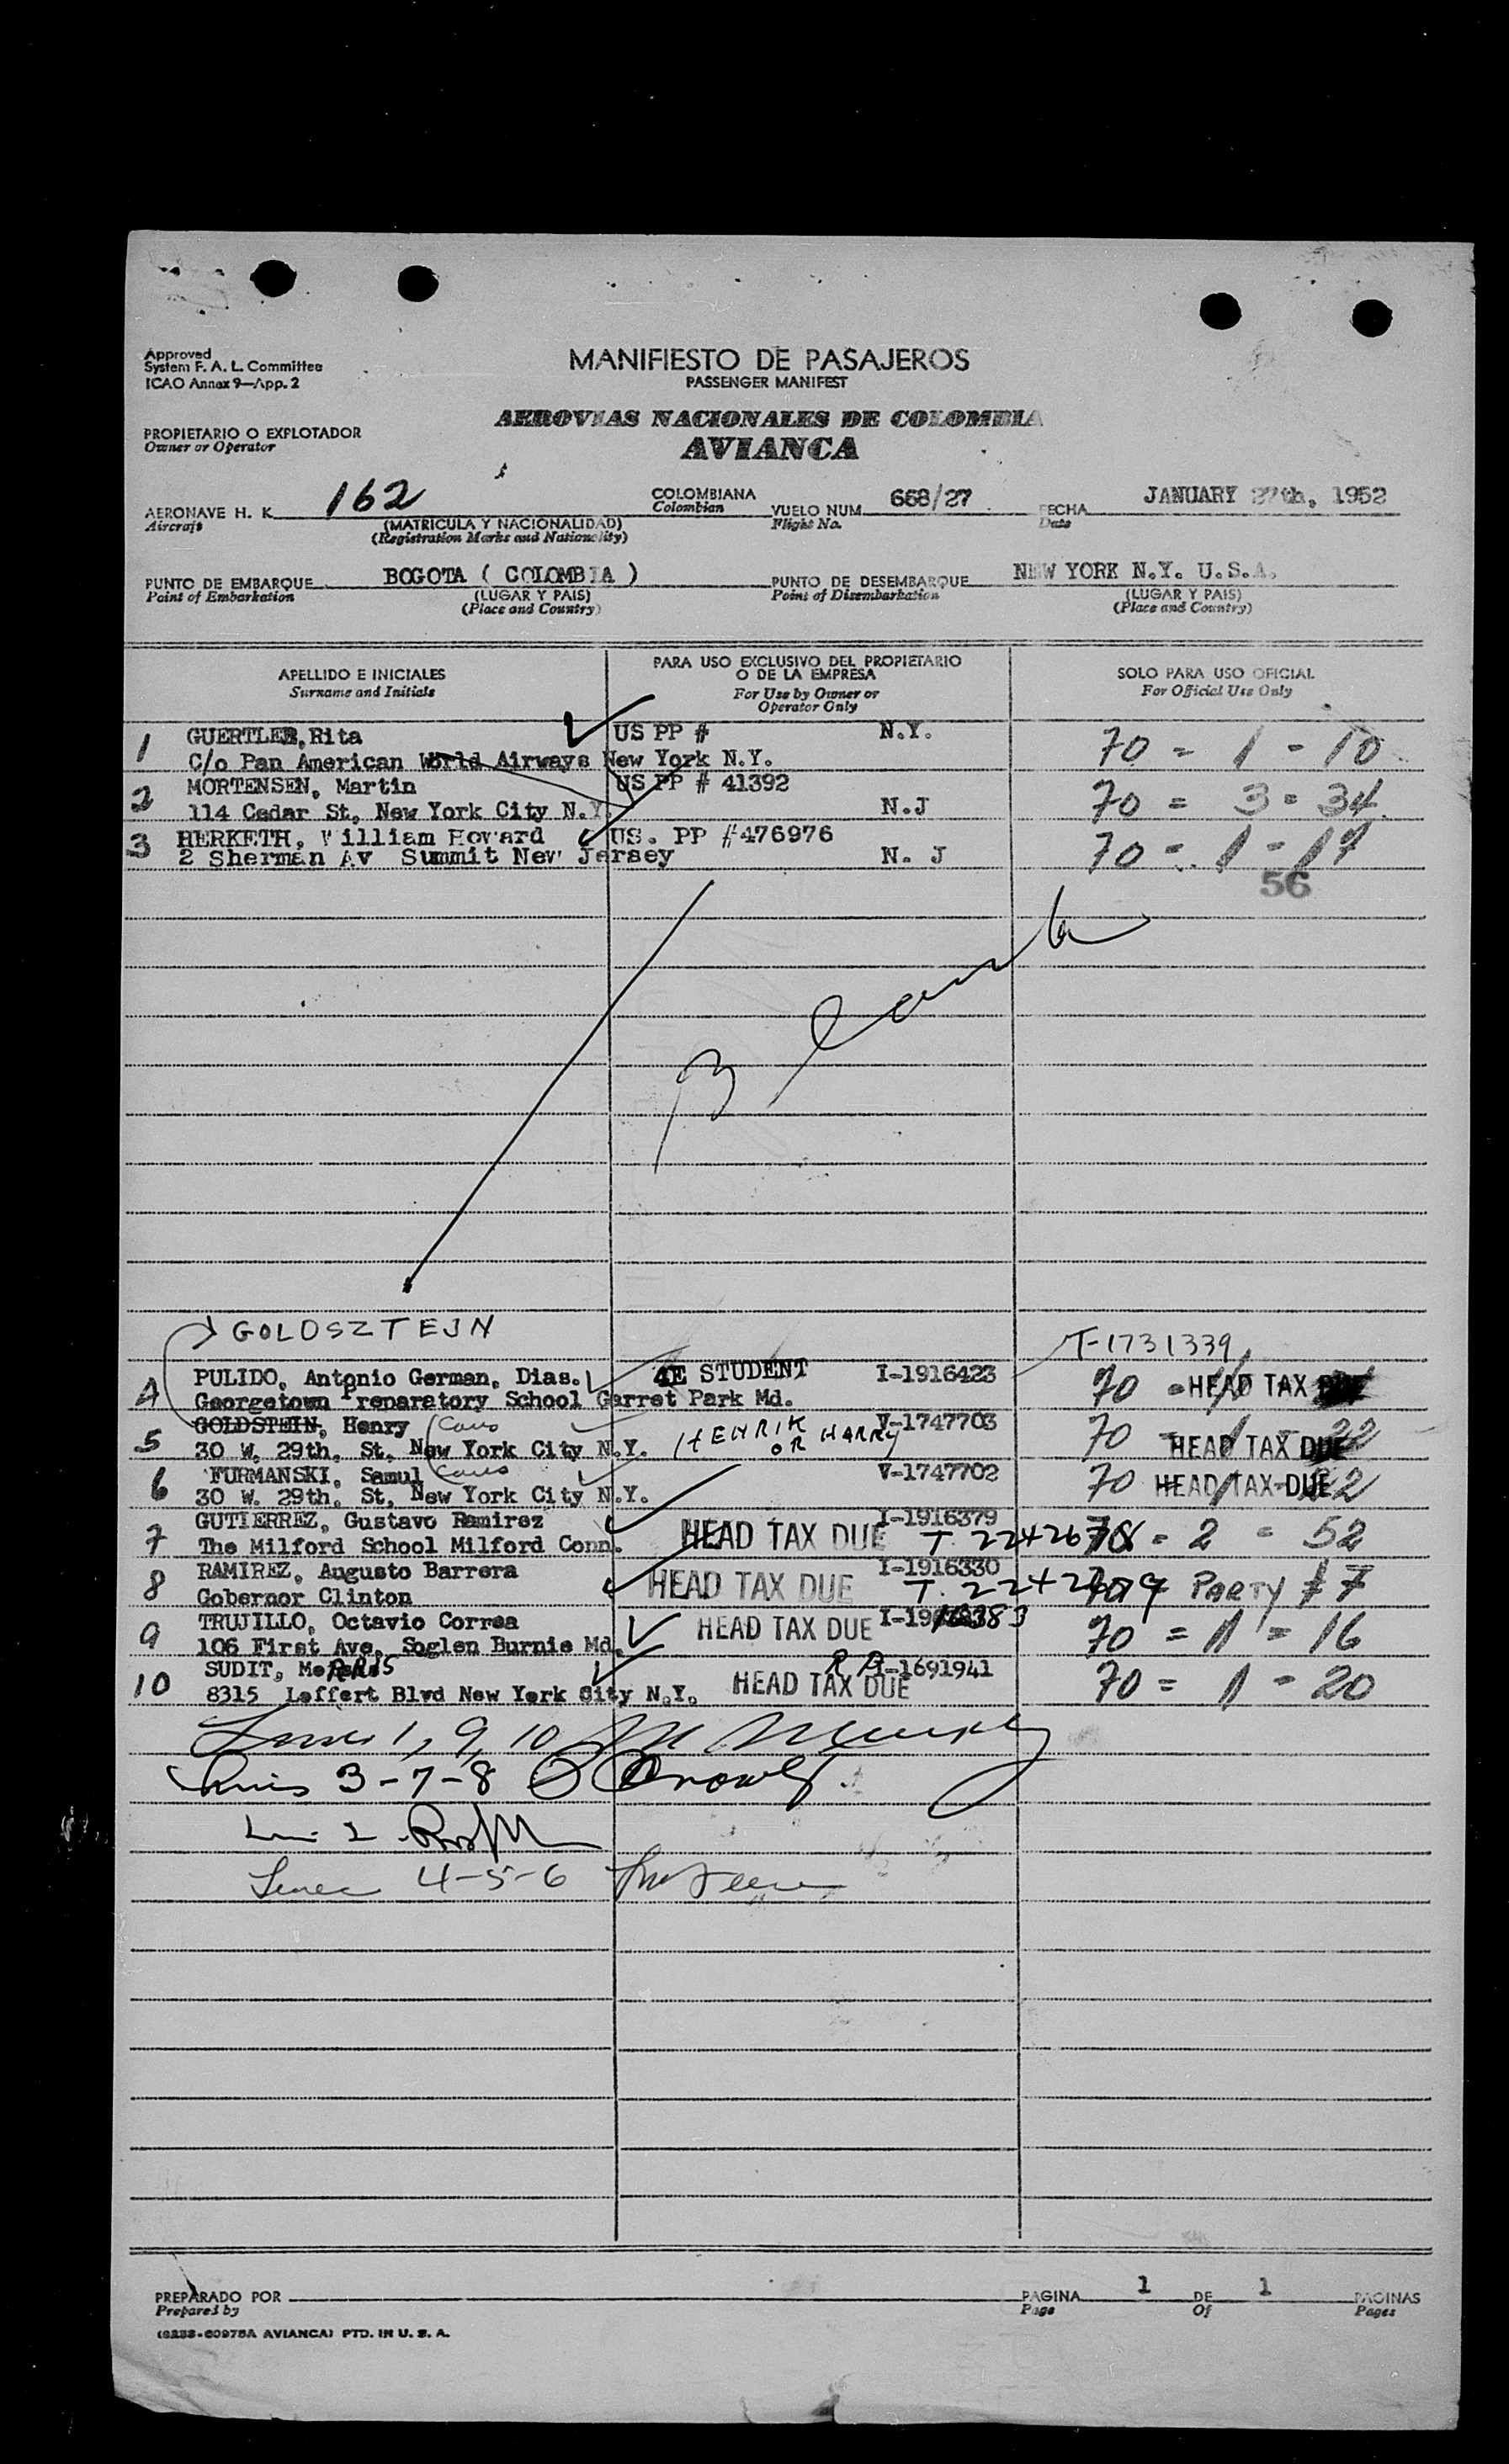 Approved
System F. A. L. Committee
ICAO Annex 9—App. 2
MANIFIESTO DE PASAJEROS
PASSENGER MANIFEST
PROPIETARIO O EXPLOTADOR
Owner or Operator
AEROVIAS NACIONALES DE COLOMBIA
AVIANCA
AERONAVE H. K. 162 COLOMBIANA VUELO NUM. 668/27 FECHA JANUARY 27th, 1952
Aircraft (MATRICULA Y NACIONALIDAD) Colombian Flight No. Date
(Registration Marks and Nationality)
PUNTO DE EMBARQUE BOGOTA ( COLOMBIA ) PUNTO DE DESEMBARQUE NEW YORK N.Y. U.S.A.
Point of Embarkation (LUGAR Y PAIS) Point of Disembarkation (LUGAR Y PAIS)
(Place and Country) (Place and Country)
APELLIDO E INICIALES
Surname and Initials
PARA USO EXCLUSIVO DEL PROPIETARIO
O DE LA EMPRESA
For Use by Owner or
Operator Only
SOLO PARA USO OFICIAL
For Official Use Only
1 GUERTLER, Rita US PP # N.Y. 70 = 1 - 10
C/o Pan American World Airways New York N.Y.
2 MORTENSEN, Martin US PP # 41392 70 = 3 = 34
114 Cedar St, New York City N.Y. N.J
3 HERKETH, William Howard US. PP #476976 70 = 1 - 17
2 Sherman Av Summit New Jersey N. J
56
GOLDSZTEJN
T-1731339
4 PULIDO, Antonio German, Dias. 4E STUDENT I-1916423 70 = HEAD TAX
Georgetown Preparatory School Garret Park Md.
5 GOLDSTEIN, Henry HENRIK OR HARRY V-1747703 70 22 HEAD TAX DUE
30 W. 29th. St, New York City N.Y.
6 FURMANSKI, Samul V-1747702 70 HEAD TAX DUE 22
30 W. 29th. St, New York City N.Y.
7 GUTIERREZ, Gustavo Ramirez HEAD TAX DUE I-1916379 70 = 2 = 52
The Milford School Milford Conn.
8 RAMIREZ, Augusto Barrera HEAD TAX DUE I-1916330 PARTY # 7
Gobernor Clinton
9 TRUJILLO, Octavio Correa HEAD TAX DUE 70 = 1 = 16
106 First Ave, Soglen Burnie Md.
10 SUDIT, Morris HEAD TAX DUE I-1691941 70 = 1 - 20
8315 Leffert Blvd New York City N.Y.
Lines 1, 9, 10
Lines 3-7-8
Lines 4-5-6
PREPARADO POR PAGINA 1 DE 1 PAGINAS
Prepared by Page Of Pages
(6233-60975A AVIANCA) PTD. IN U. S. A.